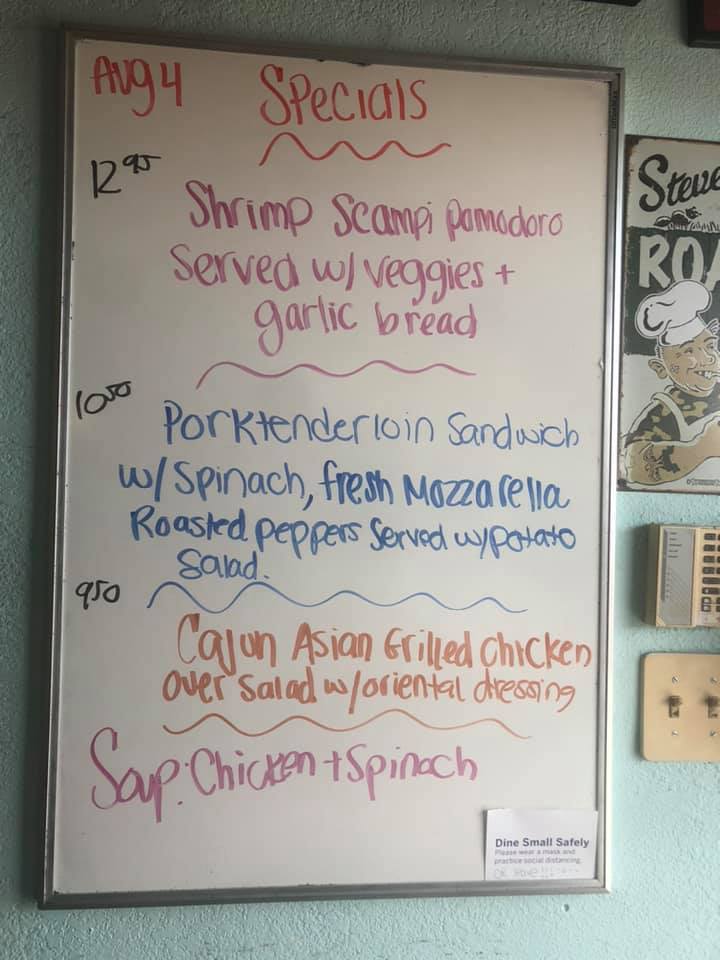 Aug 4 Specials
12 95
Shrimp Scampi Pomodoro
Served w/ veggies +
garlic bread
10 00
Porktenderloin Sandwich
w/ Spinach, fresh Mozzarella
Roasted peppers Served w/ potato
Salad.
9 50
Cajun Asian Grilled Chicken
over salad w/ oriental dressing
Soup: Chicken + Spinach
Dine Small Safely
Please wear a mask and
practice social distancing.
Steve
ROA